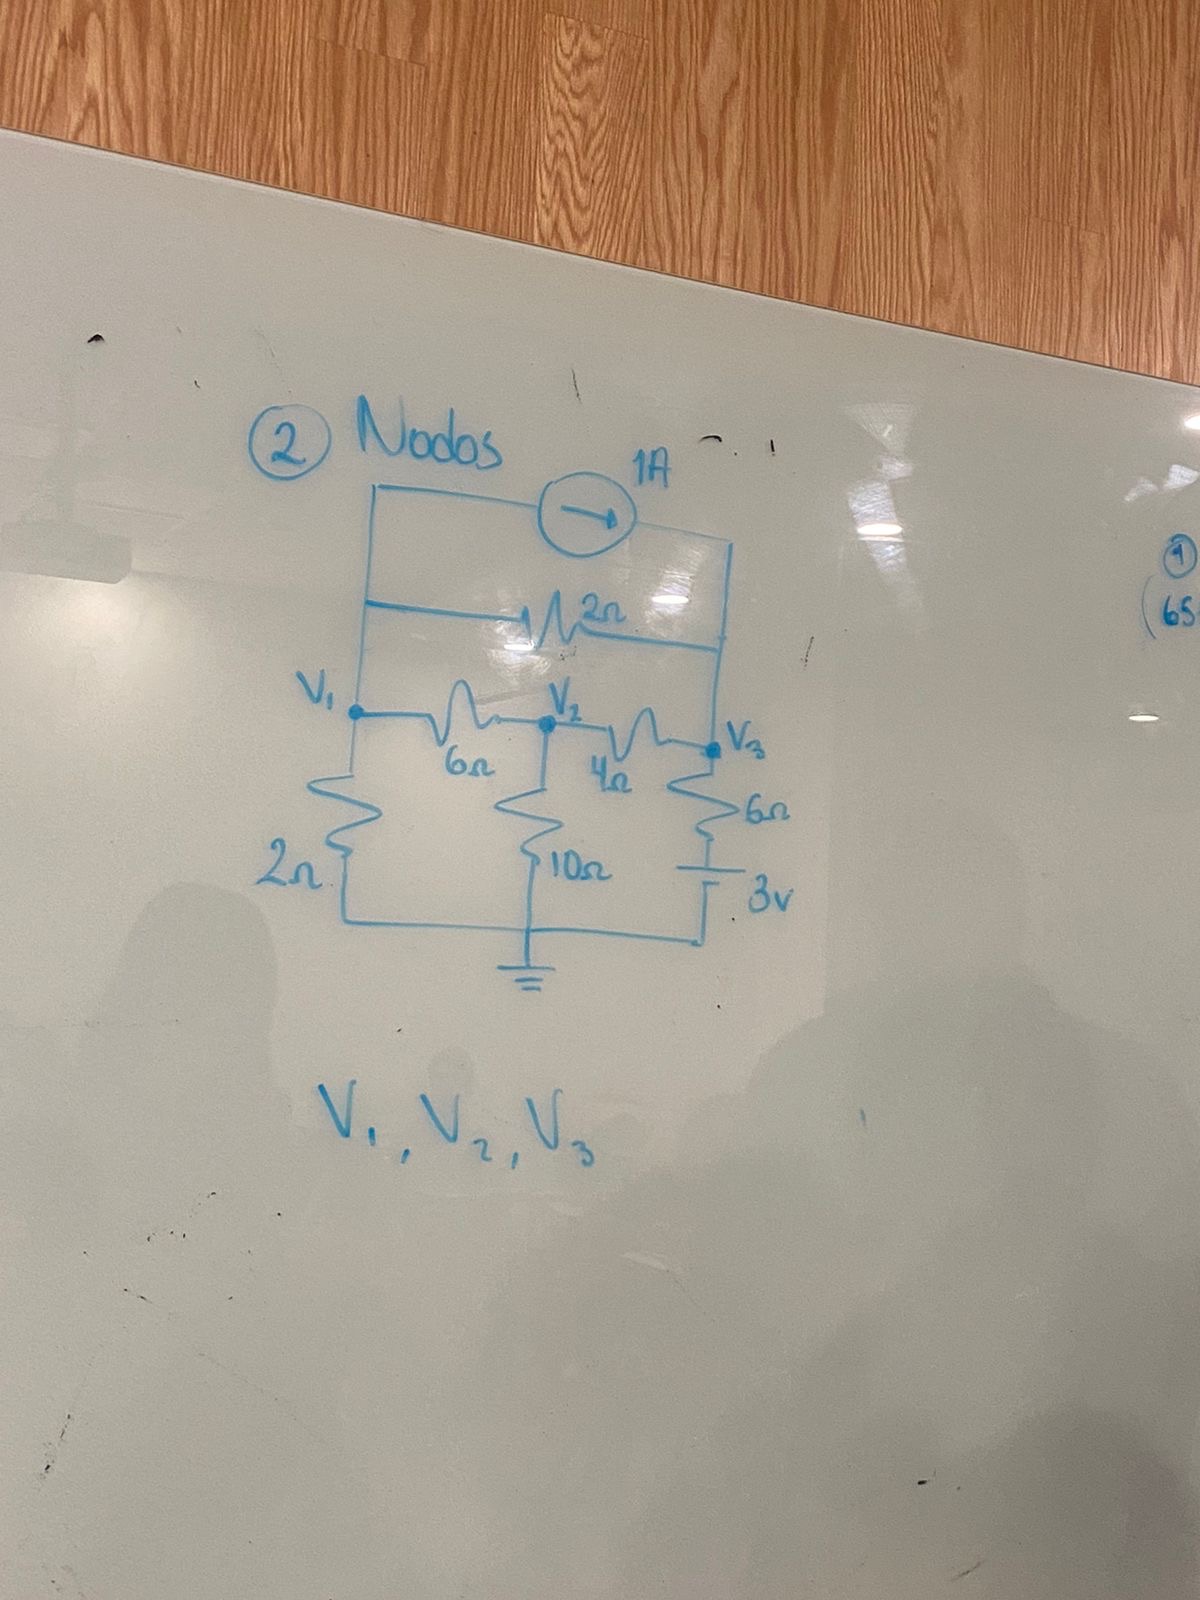 ② Nodos
1A
2Ω
V₁ V₂ V₃
6Ω 4Ω
2Ω 10Ω 6Ω
3v
V₁, V₂, V₃
①
(65